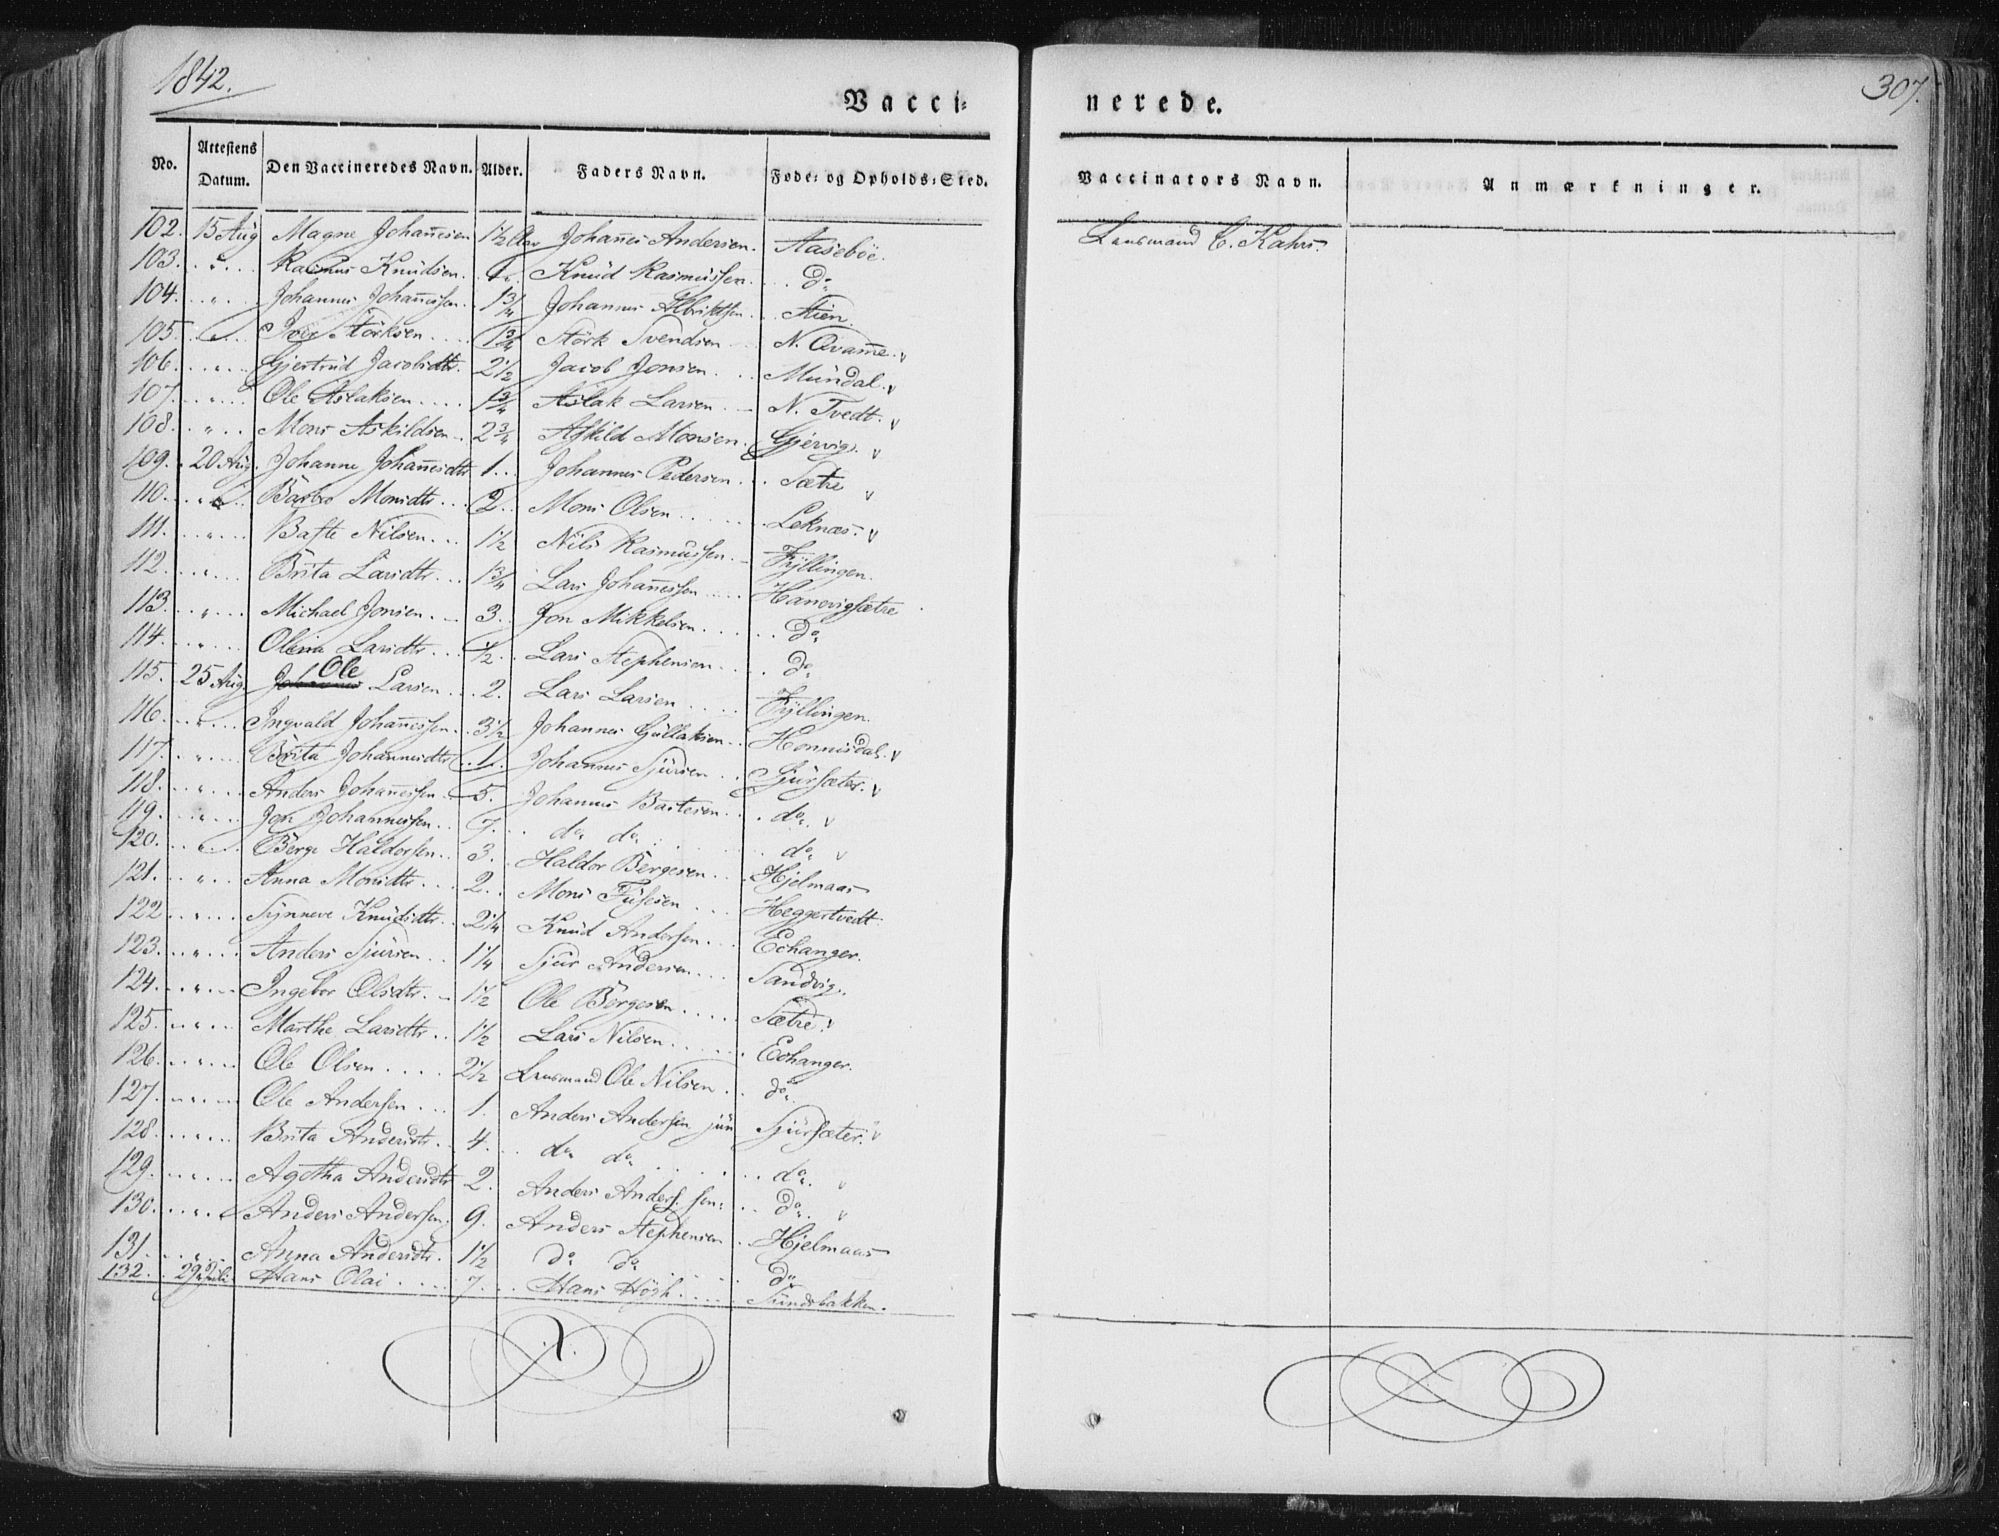 1842.
307.
Vacci= nerede.
No. Attestens Datum. Den Vaccineredes Navn. Alder. Faders Navn. Føde= og Opholds=Sted. Vaccinators Navn. Anmærkninger.
102. 15 Aug Magne Johan̅esen 1 1/2 Aar Johan̅es Andersen. Aasebøe. Lensmand C. Kahrs.
103. " Rasmus Knudsen. Knud Rasmussen. do
104. " Johannes Johan̅essen. 1 3/4 Johannes Albriktsen Stien.
105. " Iver Størksen 1 3/4 Størk Svendsen N. Qvam̅e. v
106. " Gjertrud Jacobsdtr. 2 1/2 Jacob Jonsen Mundal. v
107. " Ole Aslaksen 1 3/4 Aslak Larsen N. Tvedt. v
108. " Mons Askildsen 2 3/4 Askild Monsen. Gjervig. v
109. 20 Aug. Johanne Johan̅esdtr 1. Johannes Pedersen Sætre v
110. " Barbro Monsdtr. 2. Mons Olsen Leknæs. v
111. " Nilsen 1 1/2 Nils Rasmussen Fyllingen.
112. " Brita Larsdtr. 1 3/4 Lars Johan̅essen Hanevigsætre
113. " Michael Jonsen 3. Jon Mikkelsen do
114. " Olena Larsdtr. 1/2 Lars Stephensen do
115. 25 Aug. Ole Larsen 2. Lars Larsen Fyllingen.
116. " Ingvald Johan̅essen. 3 1/2 Johannes Gullaksen Honnisdal. v
117. " Brita Johannesdtr. 1. Johannes Sjursen Sjursæter. v
118. " Anders Johan̅essen 5. Johannes do. v
119. " Jon Johannessen. 7. do do do v
120. " Børge Haldorsen 3. Haldor Børgesen Hjelmaas
121. " Anna Monsdtr. 2. Mons Heggertvedt.
122 " Synneve Knudsdtr. 2 1/4 Knud Andersen Echanger.
123. " Anders Sjursen 1 1/4 Sjur Andersen Sandvig.
124. " Ingebor Olsdtr. 1 1/2 Ole Børgesen Sætre. v
125. " Marthe Larsdtr. 1 1/2 Lars Nilsen Echanger.
126. " Ole Olsen 2 1/2 Lensmand Ole Nilsen do
127. " Ole Andersen 1. Anders Andersen jun Sjursæter. v
128. " Brita Andersdtr. 4. do do do. v
129. " Agatha Andersdtr 2. Anders Andersen. do. v
130. " Anders Andersen. 9. Anders Stephensen Hjelmaas
131. " Anna Andersdtr. 1 1/2 do do do
132. 29 Juli Hans Olai 7. Hans Høgh Sundsbakken.